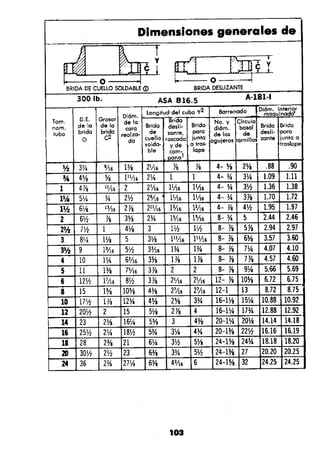 Dimensiones generales de
Y
O
BRIDA DE CUELLO SOLDABLE ①
BRIDA DESLIZANTE
300 lb. ASA B16.5 A-181-I
Tam. nom. tubo
D.E. de la brida O
Grosor de la brida
Diám. de la cara realzada
Longitud del cubo Y²
Brida de cuello soldable
Brida deslizante, roscada y de
Brida para junta a traslape
Barrenado
No. y diám. de los agujeros
Círculo basal de tornillos
Diám. interior maquinado
Brida deslizante
Brida para junta a traslape
½ 3¾ 9/16 1⅜ 2 1/16 ⅞ ⅞ 4- ⅝ 2⅝ .88 .90
¾ 4⅝ ⅝ 1 11/16 2¼ 1 1 4- ¾ 3¼ 1.09 1.11
1 4⅞ 11/16 2 2 7/16 1 1/16 1 1/16 4- ¾ 3½ 1.36 1.38
1¼ 5¼ ¾ 2½ 2 9/16 1 1/16 1 1/16 4- ¾ 3⅞ 1.70 1.72
1½ 6⅛ 13/16 2⅞ 2 11/16 1 3/16 1 3/16 4- ⅞ 4½ 1.95 1.97
2 6½ ⅞ 3⅝ 2¾ 1 5/16 1 5/16 8- ¾ 5 2.44 2.46
2½ 7½ 1 4⅛ 3 1½ 1½ 8- ⅞ 5⅞ 2.94 2.97
3 8¼ 1⅛ 5 3⅛ 1 11/16 1 11/16 8- ⅞ 6⅝ 3.57 3.60
3½ 9 1 3/16 5½ 3 3/16 1¾ 1¾ 8- ⅞ 7¼ 4.07 4.10
4 10 1¼ 6 3/16 3⅜ 1⅞ 1⅞ 8- ⅞ 7⅞ 4.57 4.60
5 11 1⅜ 7 5/16 3⅞ 2 2 8- ⅞ 9¼ 5.66 5.69
6 12½ 1 7/16 8½ 3⅞ 2 1/16 2 1/16 12- ⅞ 10⅝ 6.72 6.75
8 15 1⅝ 10⅝ 4⅜ 2 7/16 2 7/16 12-1 13 8.72 8.75
10 17½ 1⅞ 12¾ 4⅝ 2⅝ 3¾ 16-1⅛ 15¼ 10.88 10.92
12 20½ 2 15 5⅛ 2⅞ 4 16-1¼ 17¾ 12.88 12.92
14 23 2⅛ 16¼ 5⅝ 3 4⅜ 20-1¼ 20¼ 14.14 14.18
16 25½ 2¼ 18½ 5¾ 3¼ 4¾ 20-1⅜ 22½ 16.16 16.19
18 28 2⅜ 21 6¼ 3½ 5⅛ 24-1⅜ 24¾ 18.18 18.20
20 30½ 2½ 23 6⅜ 3¾ 5½ 24-1⅜ 27 20.20 20.25
24 36 2¾ 27¼ 6⅝ 4 3/16 6 24-1⅝ 32 24.25 24.25
103